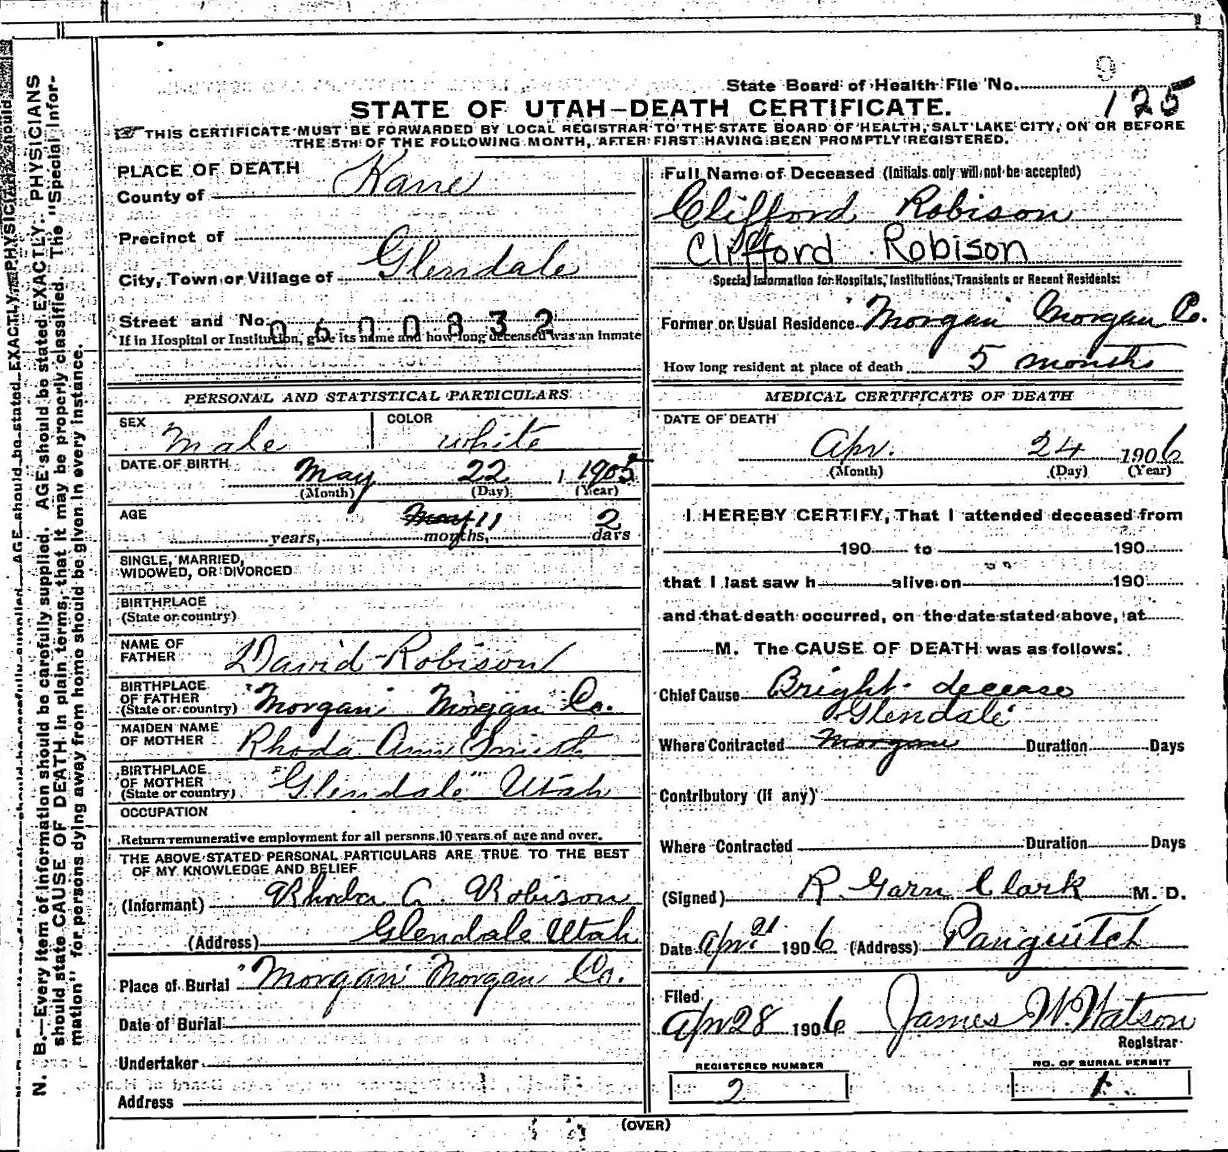 State Board of Health File No. 9
125
STATE OF UTAH—DEATH CERTIFICATE.
THIS CERTIFICATE MUST BE FORWARDED BY LOCAL REGISTRAR TO THE STATE BOARD OF HEALTH, SALT LAKE CITY, ON OR BEFORE
THE 5TH OF THE FOLLOWING MONTH, AFTER FIRST HAVING BEEN PROMPTLY REGISTERED.
PLACE OF DEATH
County of Kane
Precinct of
City, Town or Village of Glendale
Street and No. 0600832
If in Hospital or Institution, give its name and how long deceased was an inmate
PERSONAL AND STATISTICAL PARTICULARS
SEX Male COLOR white
DATE OF BIRTH May 22, 1905
(Month) (Day) (Year)
AGE May 11 2
years, months, days
SINGLE, MARRIED,
WIDOWED, OR DIVORCED
BIRTHPLACE
(State or country)
NAME OF
FATHER David Robison
BIRTHPLACE
OF FATHER
(State or country) "Morgan" Morgan Co.
MAIDEN NAME
OF MOTHER Rhoda Ann Smith
BIRTHPLACE
OF MOTHER
(State or country) "Glendale" Utah
OCCUPATION
Return remunerative employment for all persons 10 years of age and over.
THE ABOVE STATED PERSONAL PARTICULARS ARE TRUE TO THE BEST
OF MY KNOWLEDGE AND BELIEF
(Informant) Rhoda A. Robison
(Address) Glendale Utah
Place of Burial "Morgan" Morgan Co.
Date of Burial
Undertaker
Address
Full Name of Deceased (Initials only will not be accepted)
Clifford Robison
Clifford Robison
Special Information for Hospitals, Institutions, Transients or Recent Residents:
Former or Usual Residence "Morgan" Morgan Co.
How long resident at place of death 5 months
MEDICAL CERTIFICATE OF DEATH
DATE OF DEATH
Apr. 24 1906
(Month) (Day) (Year)
I HEREBY CERTIFY, That I attended deceased from
190 to 190
that I last saw h alive on 190
and that death occurred, on the date stated above, at
M. The CAUSE OF DEATH was as follows:
Chief Cause Bright decease
Glendale
Where Contracted Morgan Duration Days
Contributory (if any)
Where Contracted Duration Days
(Signed) R. Garn Clark M. D.
Date Apr. 21 1906 (Address) Panguitch
Filed
Apr 28 1906 James W. Watson
Registrar
REGISTERED NUMBER
2
NO. OF BURIAL PERMIT
1
(OVER)
N. B.—Every item of information should be carefully supplied. AGE should be stated EXACTLY. PHYSICIANS
should state CAUSE OF DEATH in plain terms, that it may be properly classified. The "Special Infor-
mation" for persons dying away from home should be given in every instance.